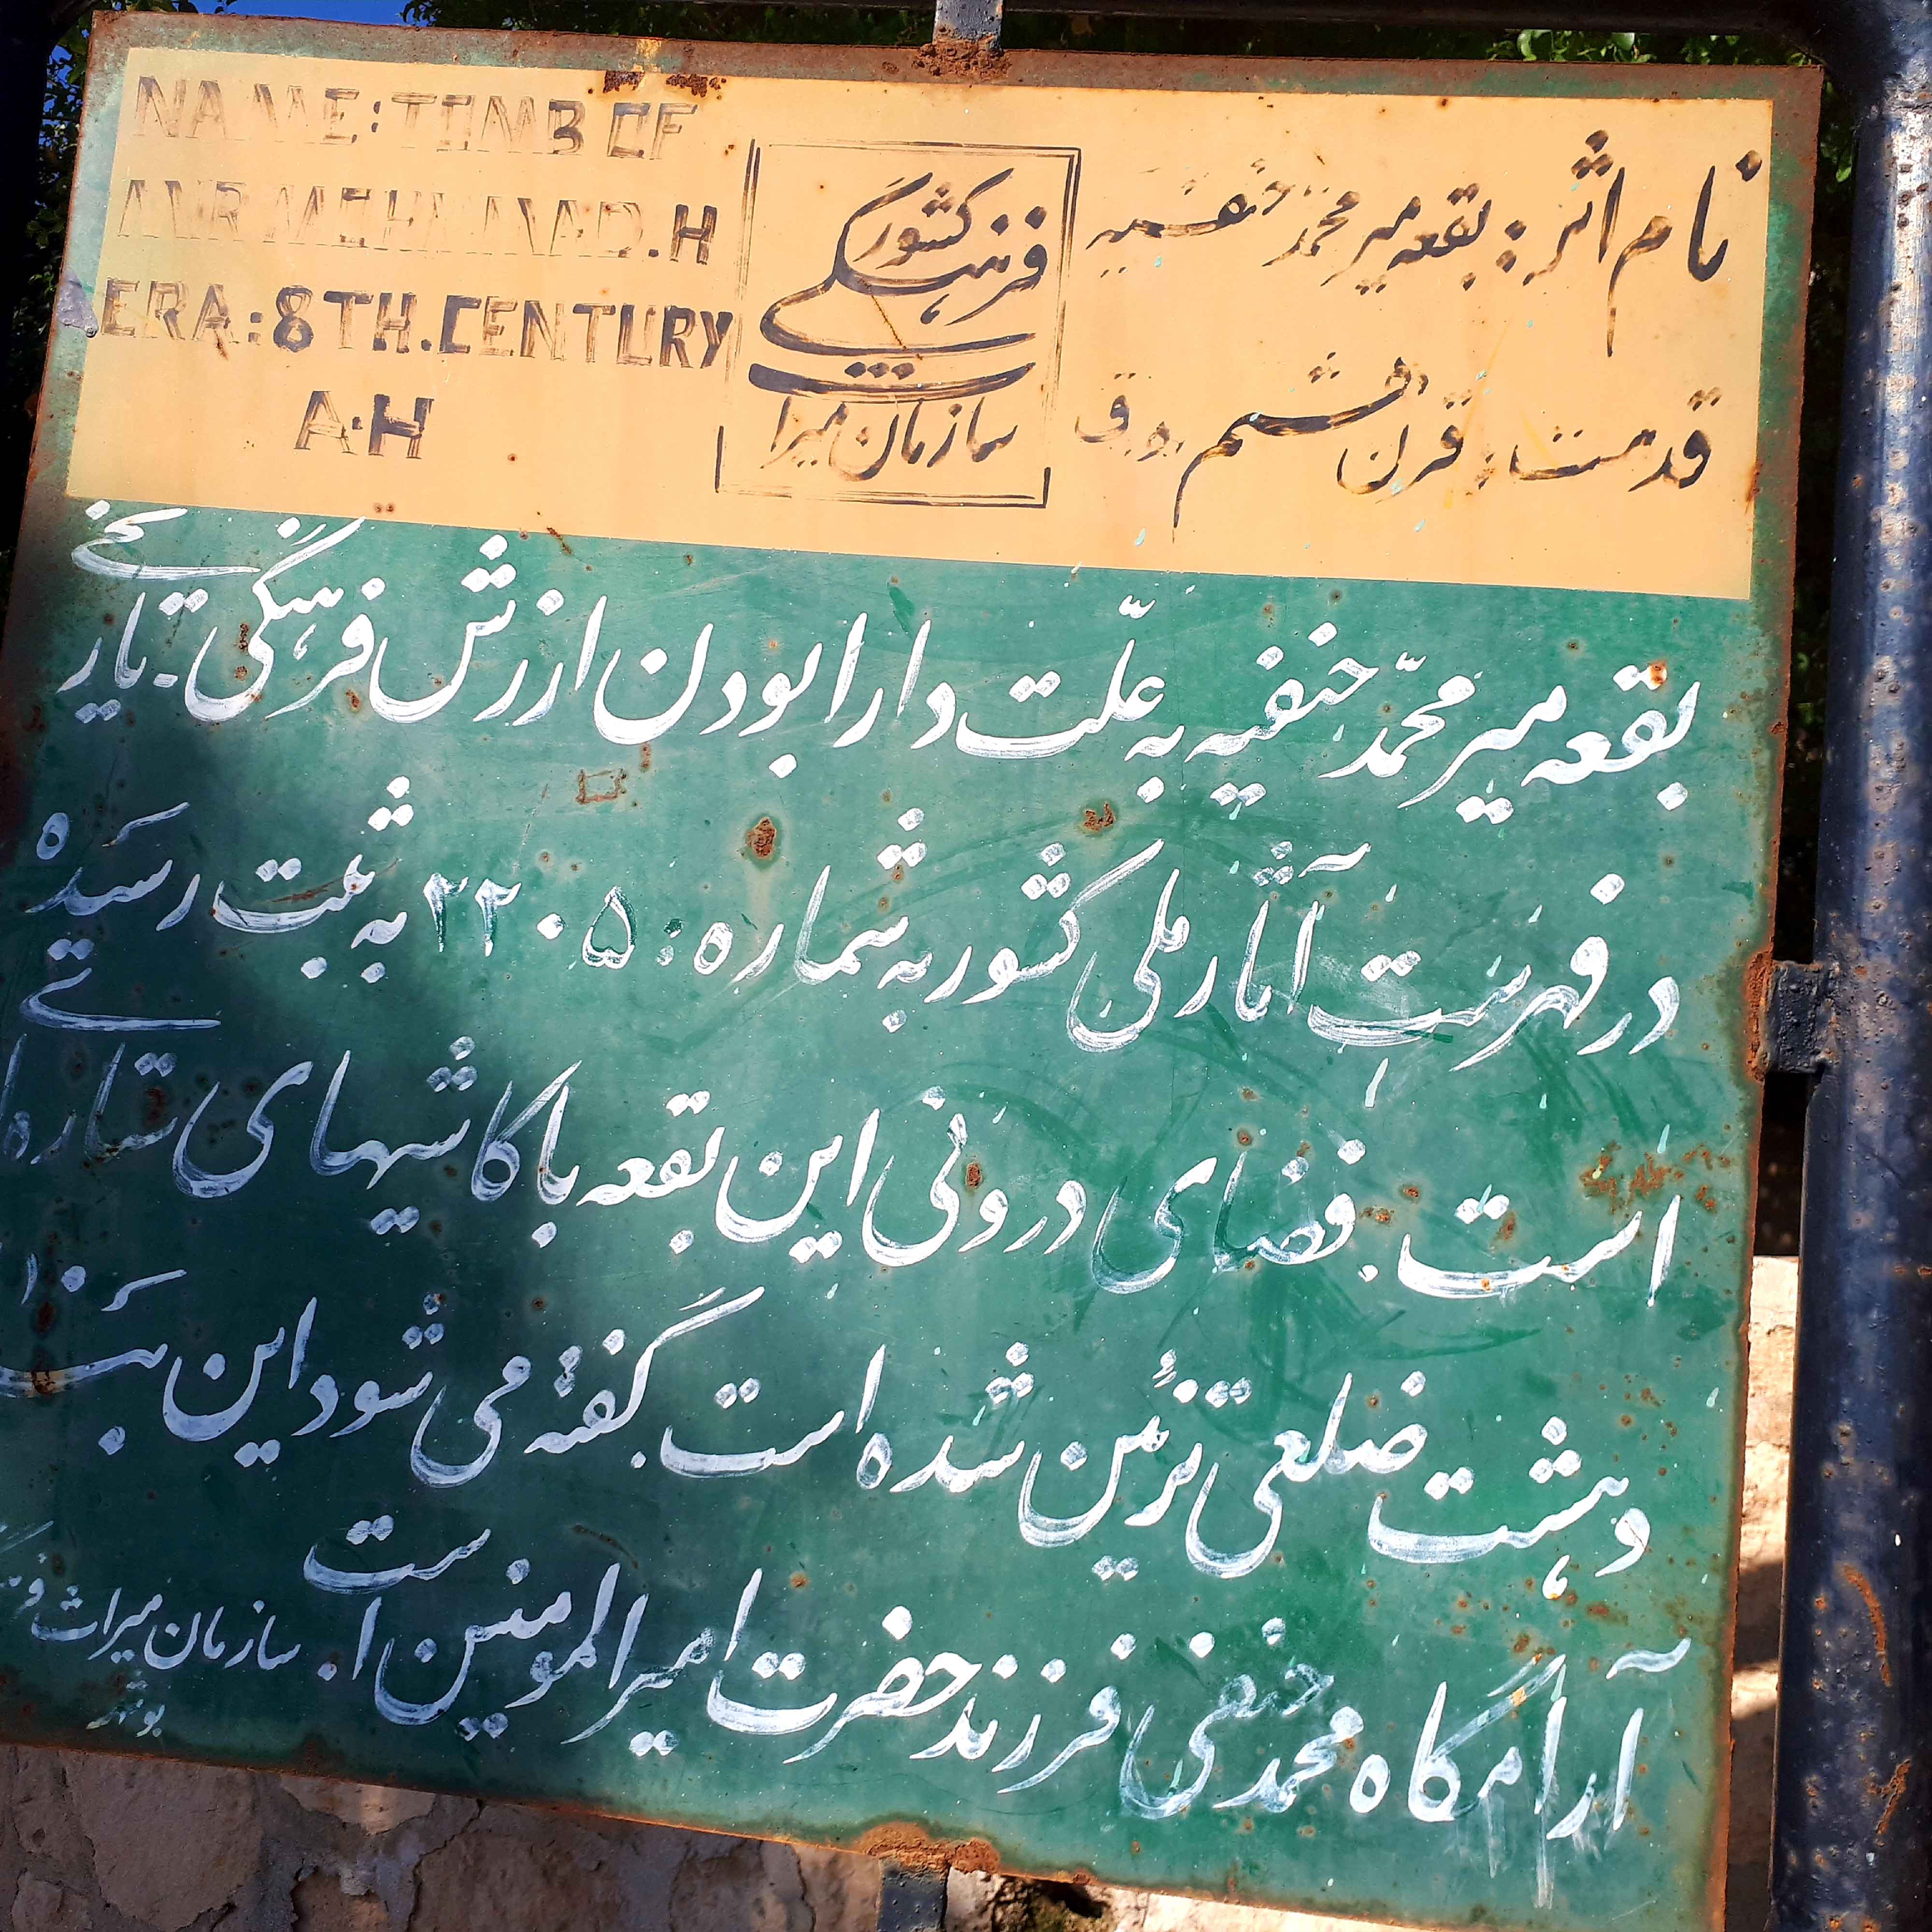 NAME: TOMB OF
MIR MOHAMMAD.H
ERA: 8TH.CENTURY
A.H
سازمان میراث
فرهنگی
کشور
نام اثر: بقعه میر محمد حنفیه
قدمت: قرن هشتم ه.ق
بقعه میر محمّد حنفیه به علّت دارا بودن ارزش فرهنگی - تاریخی
در فهرست آثار ملی کشور به شماره: ۲۲۰۵ به ثبت رسیده
است. فضای درونی این بقعه با کاشیهای ستاره ای
و هشت ضلعی تزئین شده است. گفته می شود این بنا
آرامگاه محمد حنفی فرزند حضرت امیرالمومنین است.
سازمان میراث
بوشهر